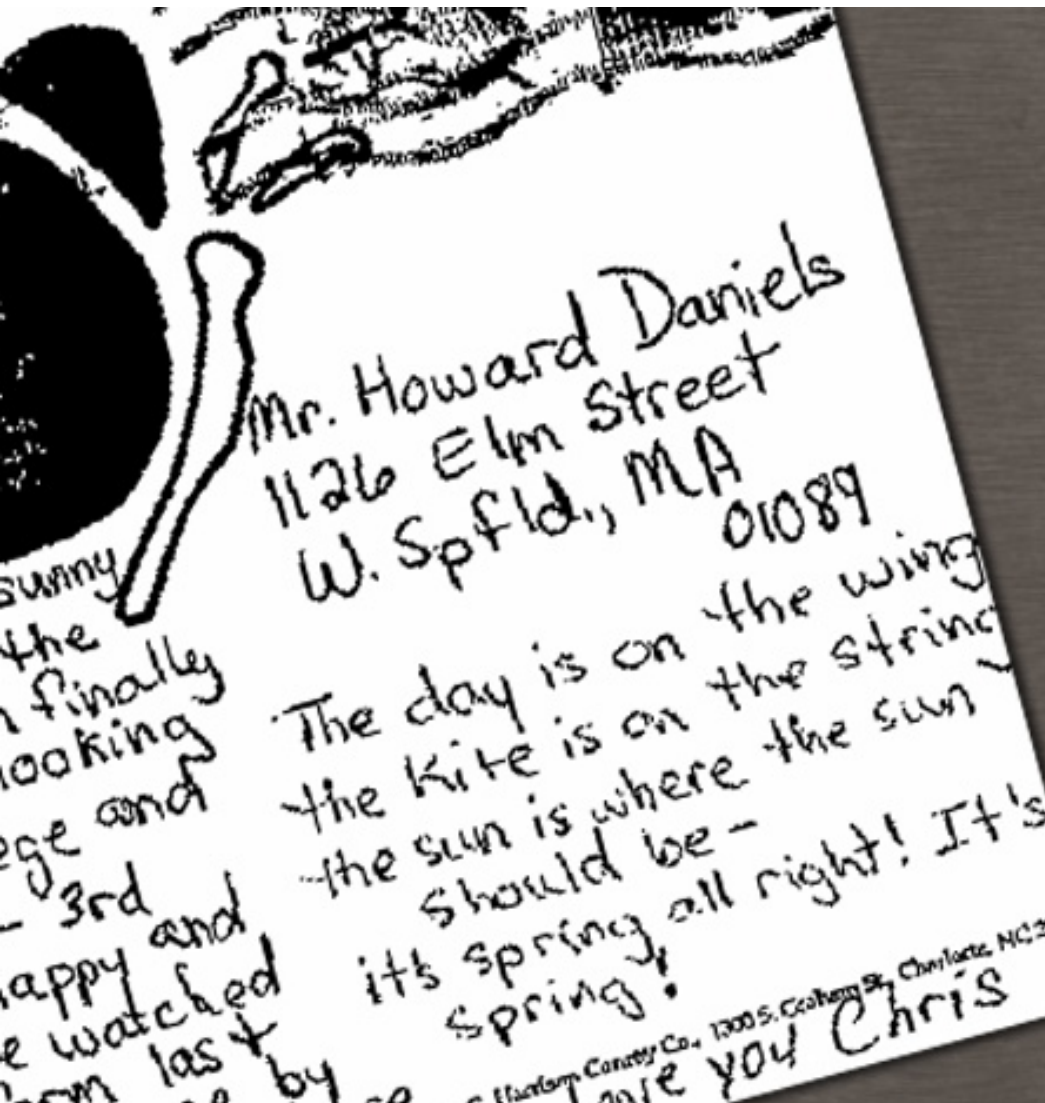 Mr. Howard Daniels
1126 Elm Street
W. Spfld., MA
01089
sunny
the
finally
looking
and
3rd
happy and
watched
last
by
The day is on the wing
the kite is on the string
the sun is where the sun
should be -
it's spring all right! It's
spring!
Co., 1300 S. St., Charlotte, NC
you Chris